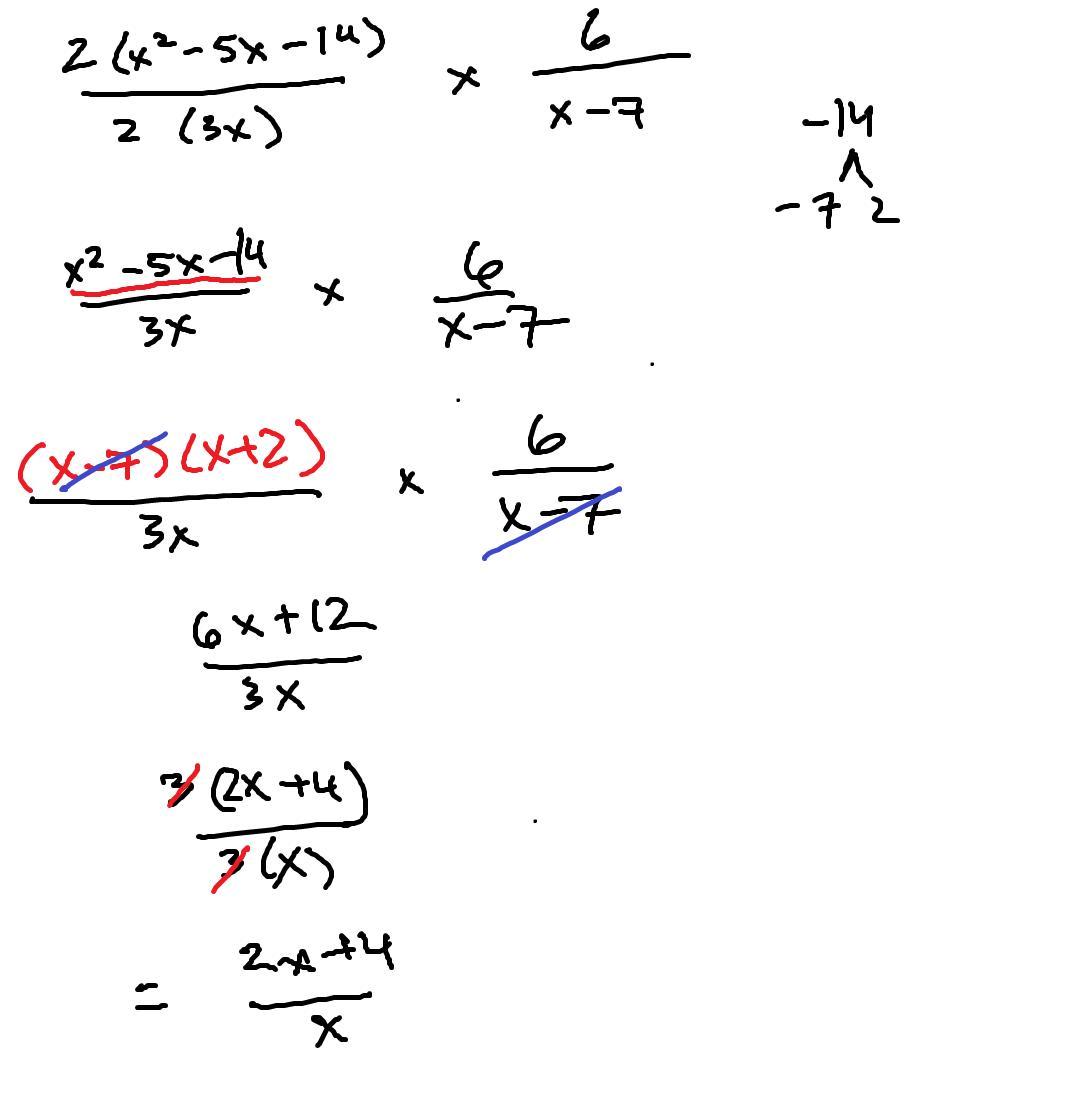 2 (x² - 5x - 14) / 2 (3x) × 6 / x - 7
-14
-7 2
x² - 5x - 14 / 3x × 6 / x - 7
(x - 7) (x + 2) / 3x × 6 / x - 7
6x + 12 / 3x
3 (2x + 4) / 3 (x)
= 2x + 4 / x